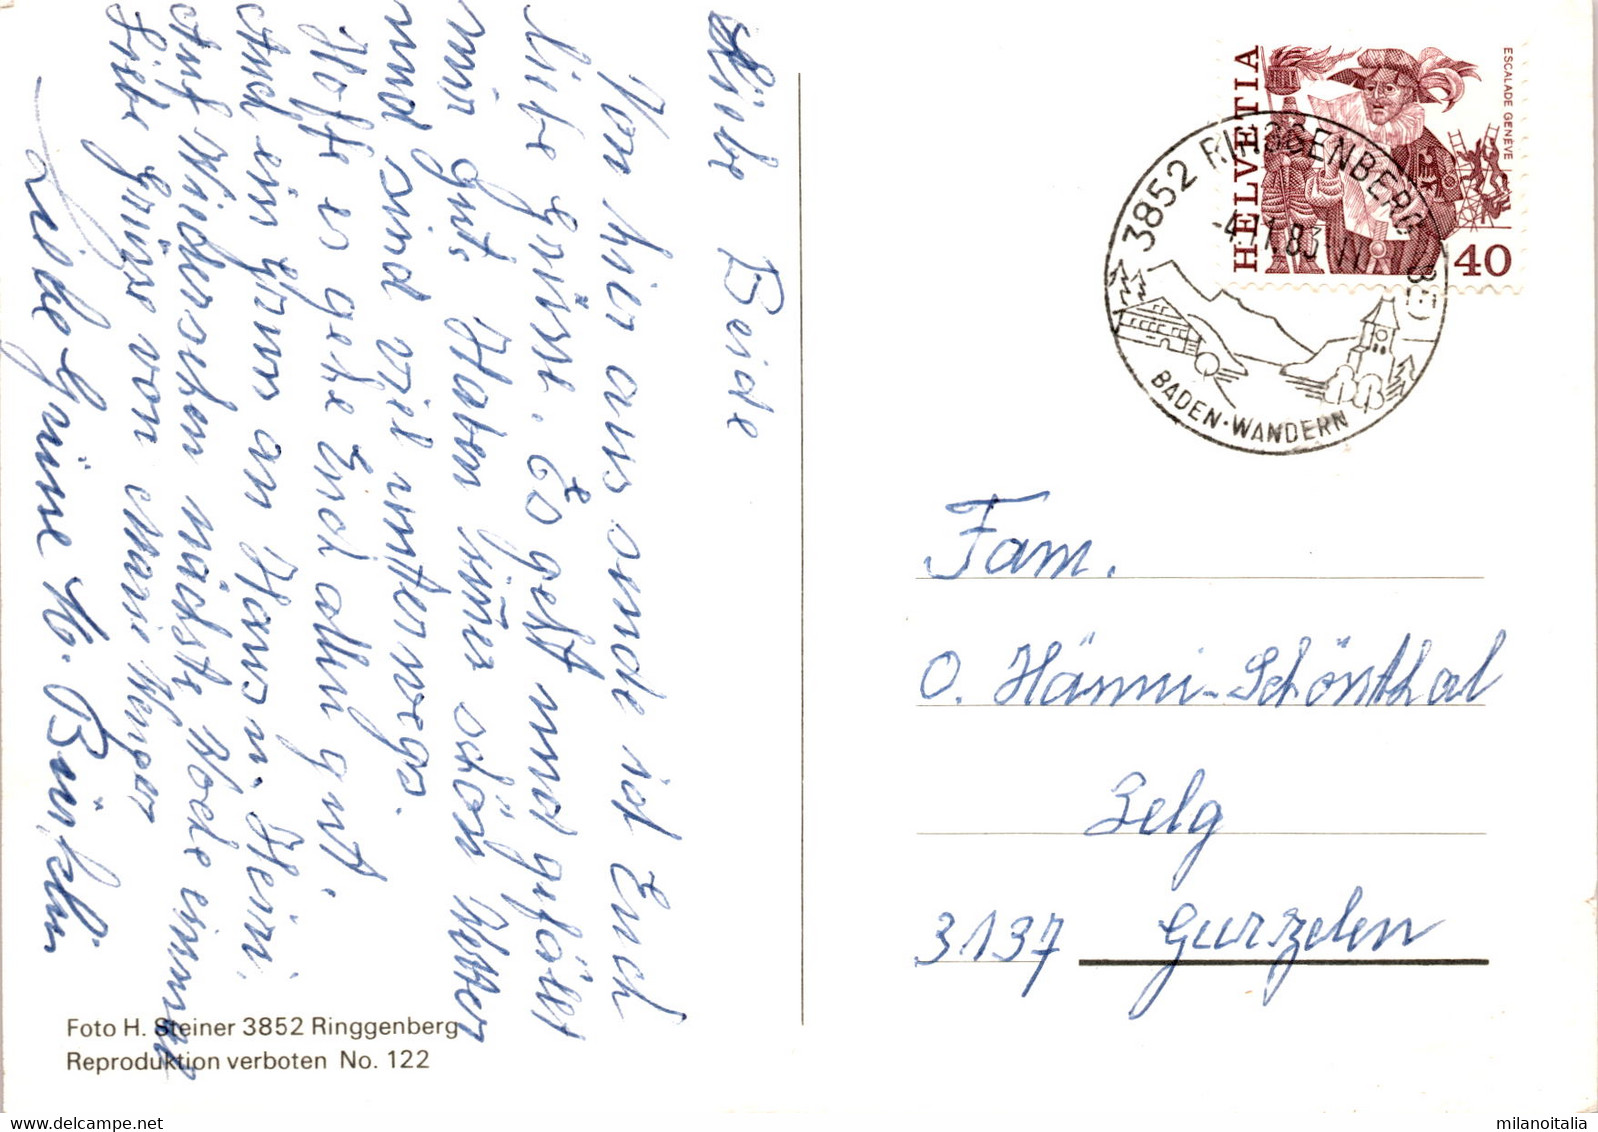 Liebe Beide
Von hier aus sende ich Euch
liebe Grüsse. Es geht und gefällt
mir gut. Haben im̄er schön Wetter
und sind viel unterwegs.
Hoffe es gehe Euch allen gut.
Und ein Gruss an Hans u. Heini.
Auf Wiedersehen nächste Woche einmal
Liebe Grüsse von Marie Wenger
Liebe Grüsse H. Bürki
Foto H. Steiner 3852 Ringgenberg
Reproduktion verboten No. 122
HELVETIA
ESCALADE GENÈVE
40
3852 RINGGENBERG
BADEN·WANDERN
Fam.
O. Hänni-Schönthal
Zelg
3137 Gurzelen
milanoitalia